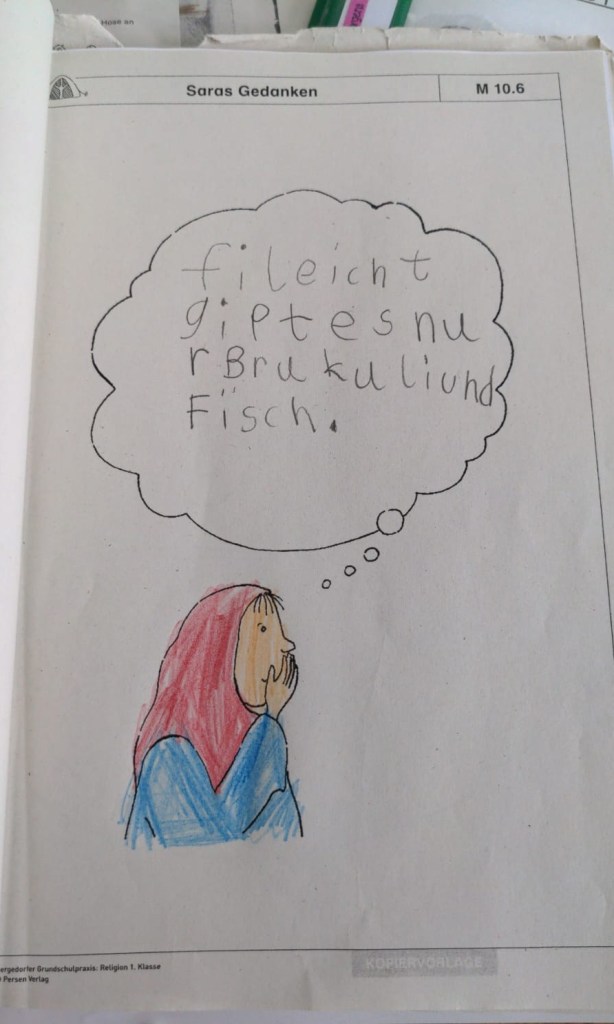 Hose an
Saras Gedanken
M 10.6
fileicht
giptes nu
r Brukuliund
Fisch.
ergedorfer Grundschulpraxis: Religion 1. Klasse
Persen Verlag
KOPIERVORLAGE